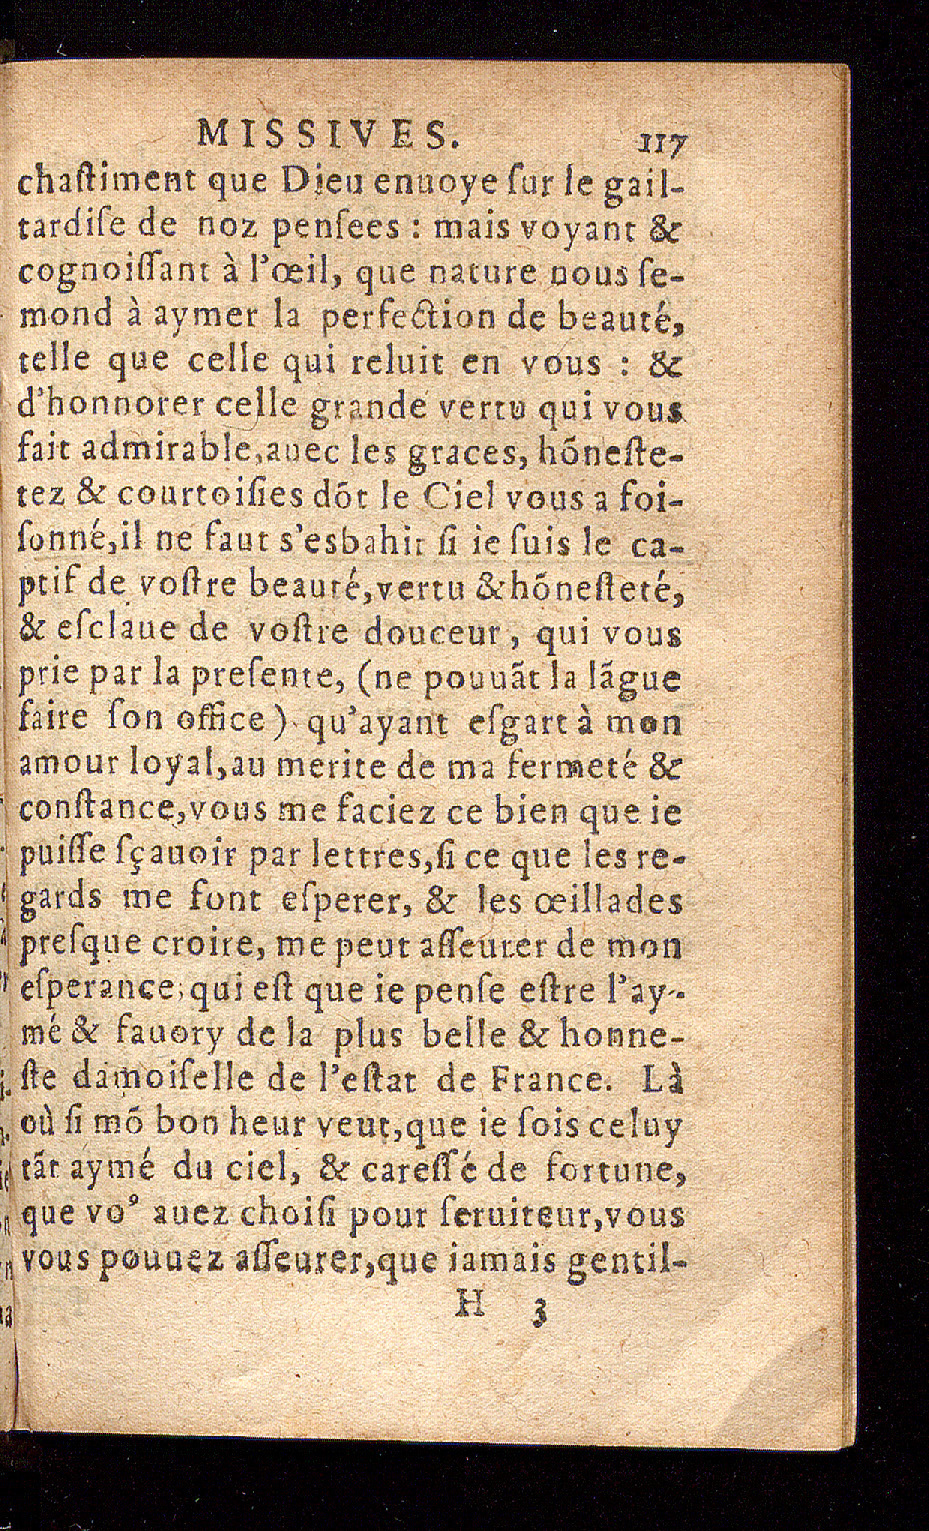 MISSIVES. 117
chaſtiment que Dieu enuoye ſur le gail-
tardiſe de noz penſees : mais voyant &
cognoiſſant à l'œil, que nature nous ſe-
mond à aymer la perfection de beauté,
telle que celle qui reluit en vous : &
d'honnorer celle grande vertu qui vous
fait admirable,auec les graces, hõneſte-
tez & courtoiſies dõt le Ciel vous a foi-
ſonné,il ne faut s'esbahir ſi ie ſuis le ca-
ptif de voſtre beauté,vertu & hõneſteté,
& eſclaue de voſtre douceur, qui vous
prie par la preſente, (ne pouuãt la lãgue
faire ſon office) qu'ayant eſgart à mon
amour loyal,au merite de ma fermeté &
conſtance,vous me faciez ce bien que ie
puiſſe ſçauoir par lettres,ſi ce que les re-
gards me font eſperer, & les œillades
preſque croire, me peut aſſeurer de mon
eſperance,qui eſt que ie penſe eſtre l'ay-
mé & fauory de la plus belle & honne-
ſte damoiſelle de l'eſtat de France. Là
où ſi mõ bon heur veut,que ie ſois celuy
tãt aymé du ciel, & careſſé de fortune,
que voꝰ auez choiſi pour ſeruiteur,vous
vous pouuez aſſeurer,que iamais gentil-
H 3